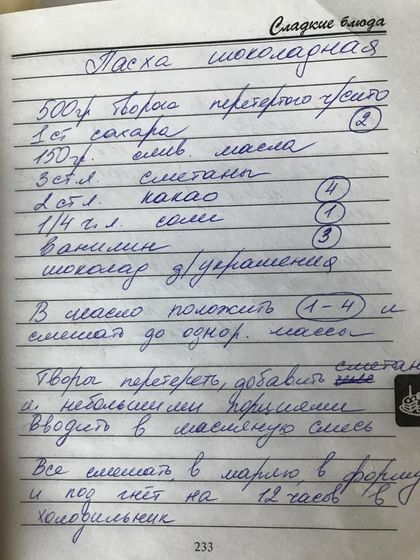 Сладкие блюда
Пасха шоколадная
500гр творога перетертого ч/сито
1 ст сахара 2
150гр. слив. масла
3 ст л. сметаны
2 ст л. какао 4
1/4 ч. л. соли 1
Ванилин 3
шоколад д/украшения
В масло положить 1-4 и
смешать до однор. массы
Творог перетереть, добавить сметан
и небольшими порциями
Вводить в масляную смесь
Все смешать, в марлю, в форму
и под гнёт на 12 часов в
холодильник
233